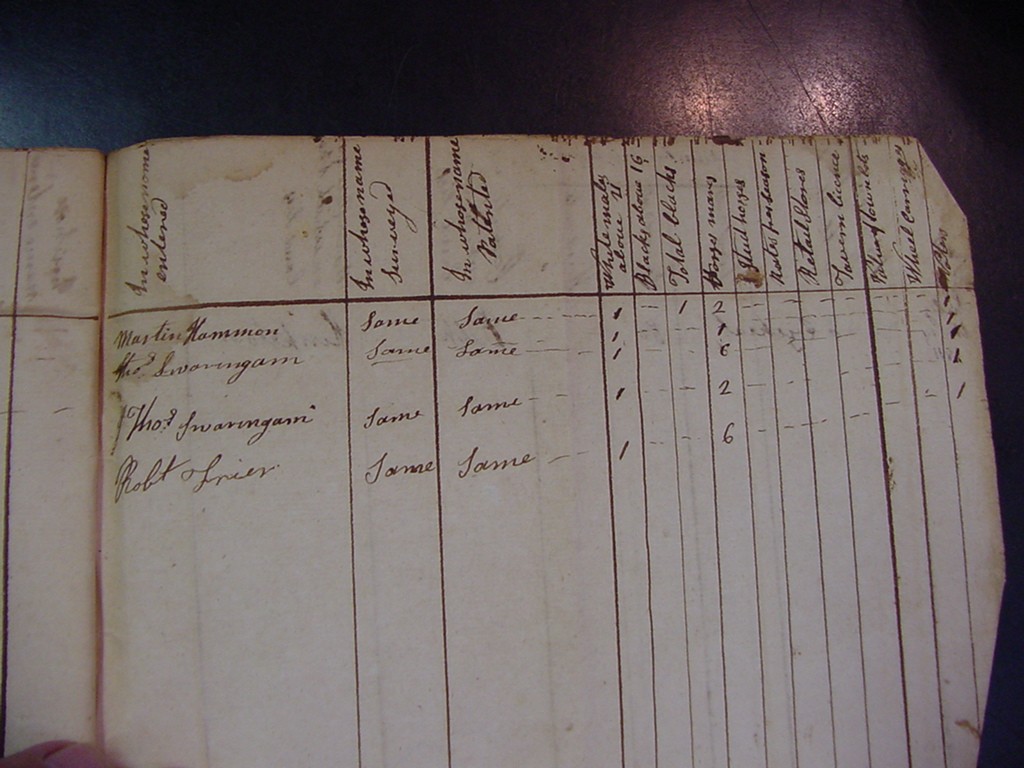 In whose name entered
In whose name Surveyed
In whose name Pattented
White males above 21
Blacks above 16
Total blacks
Stud horses
Rates per season
Retail Stores
Tavern licence
Wheel Carriages
Martin Hammon Same Same - - - - 1 - - 1 2 - -
Tho.s Swaringam Same Same - - - 1 - - 6
Tho.s Swaringam Same Same - - 1 - - 2
Robt Grier Same Same - - 1 - - 6